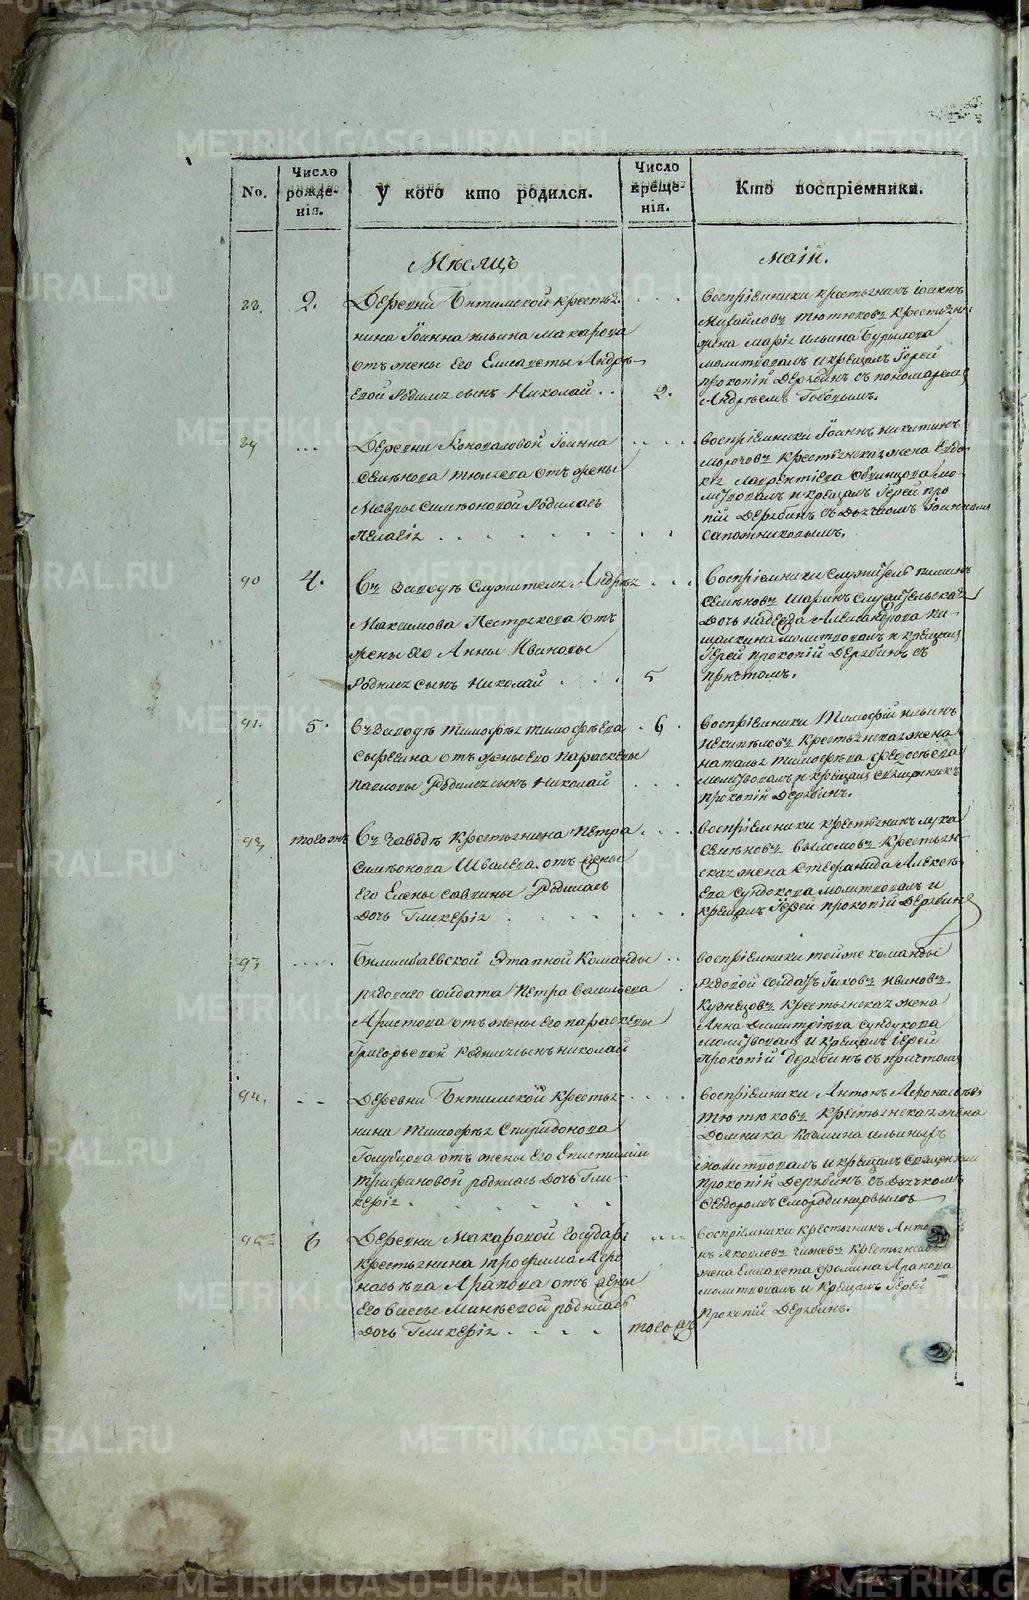 No.
Число рожденія.
У кого кто родился.
Число крещенія.
Кто воспріемники.
Мѣсяцъ
Маій.
2.
Деревни Битимской крестья
нина Іоанна Ильина Макарова
отъ жены его Елисаветы Андрѣ-
евой родился сынъ Николай
2.
Воспріемники крестьянинъ Іоаннъ
Михайловъ Тютюковъ крестьянс:
жена Марія Ильина Бурылова
молитвовалъ и крещалъ Іерей
Прокопій Дерябинъ съ пономаремъ
Андрѣемъ
89
Деревни Коноваловой Іоанна
отъ жены
Мавры Симѣоновой родилась
Пелагія
Воспріемники Іоаннъ Никитинъ
крестьянская жена Евдо-
кія Лаврентіева мо-
литвовалъ и крещалъ Іерей Про
пій Дерябинъ съ дьячкомъ Іоанномъ
Сапожниковымъ.
90
4.
Въ заводѣ служителя Андрѣя
Максимова Пестрякова отъ
жены его Анны Ивановы
родился сынъ Николай
5
Воспріемники служитель
Семѣновъ Шаринъ служительская
дочь Надежда Александрова Пи-
щалкина молитвовалъ и крещалъ
Іерей Прокопій Дерябинъ съ
причтомъ.
91.
5.
Въ заводѣ Тимофѣя Тимофѣева
отъ жены его Параскевы
Павловы родился сынъ Николай
6.
Воспріемники Тимофій Ильинъ
крестьянская жена
Наталья Тимофѣева Федосѣева
молитвовалъ и крещалъ священникъ
Прокопій Дерябинъ.
92
тогожъ
Въ заводѣ крестьянина Петра
Симѣонова Швалева отъ жены
его Елены Саввины родилась
дочь Гликерія
Воспріемники крестьянинъ Лука
Семѣновъ крестьян-
ская жена Стефанида Алексѣ-
ева Сундокова молитвовалъ и
крещалъ Іерей Прокопій Дерябинъ
93
Билимбаевской этапной команды
рядоваго солдата Петра Васильева
Аристова отъ жены его Параскевы
Григорьевой родился сынъ Николай
Воспріемники тойже команды
рядовой солдатъ Іяковъ Ивановъ
Кузнецовъ крестьянская жена
Анна Димитріева Сундукова
молитвовалъ и крещалъ Іерей
Прокопій Дерябинъ съ причтомъ
94.
Деревни Битимской крестья-
нина Тимофѣя Спиридонова
Голубцова отъ жены его Епистиміи
Трифановой родилась дочь Гли-
керія
Воспріемники Антонъ Афонасьевъ
Тютюковъ крестьянская жена
Домника Козмина Ильиныхъ
молитвовалъ и крещалъ священникъ
Прокопій Дерябинъ съ дьячкомъ
Феодоромъ Смородинцовымъ
95
6
Деревни Макаровой государ:
крестьянина Трофима Афо
насьева Арапова отъ жены
его Васы Минѣевой родилась
дочь Гликерія
тогожъ
Воспріемники крестьянинъ Анто
нъ Яковлевъ крестьянская
жена Елисавета Фомина Арапова
молитвовалъ и крещалъ Іерей
Прокопій Дерябинъ.
METRIKI.GASO-URAL.RU